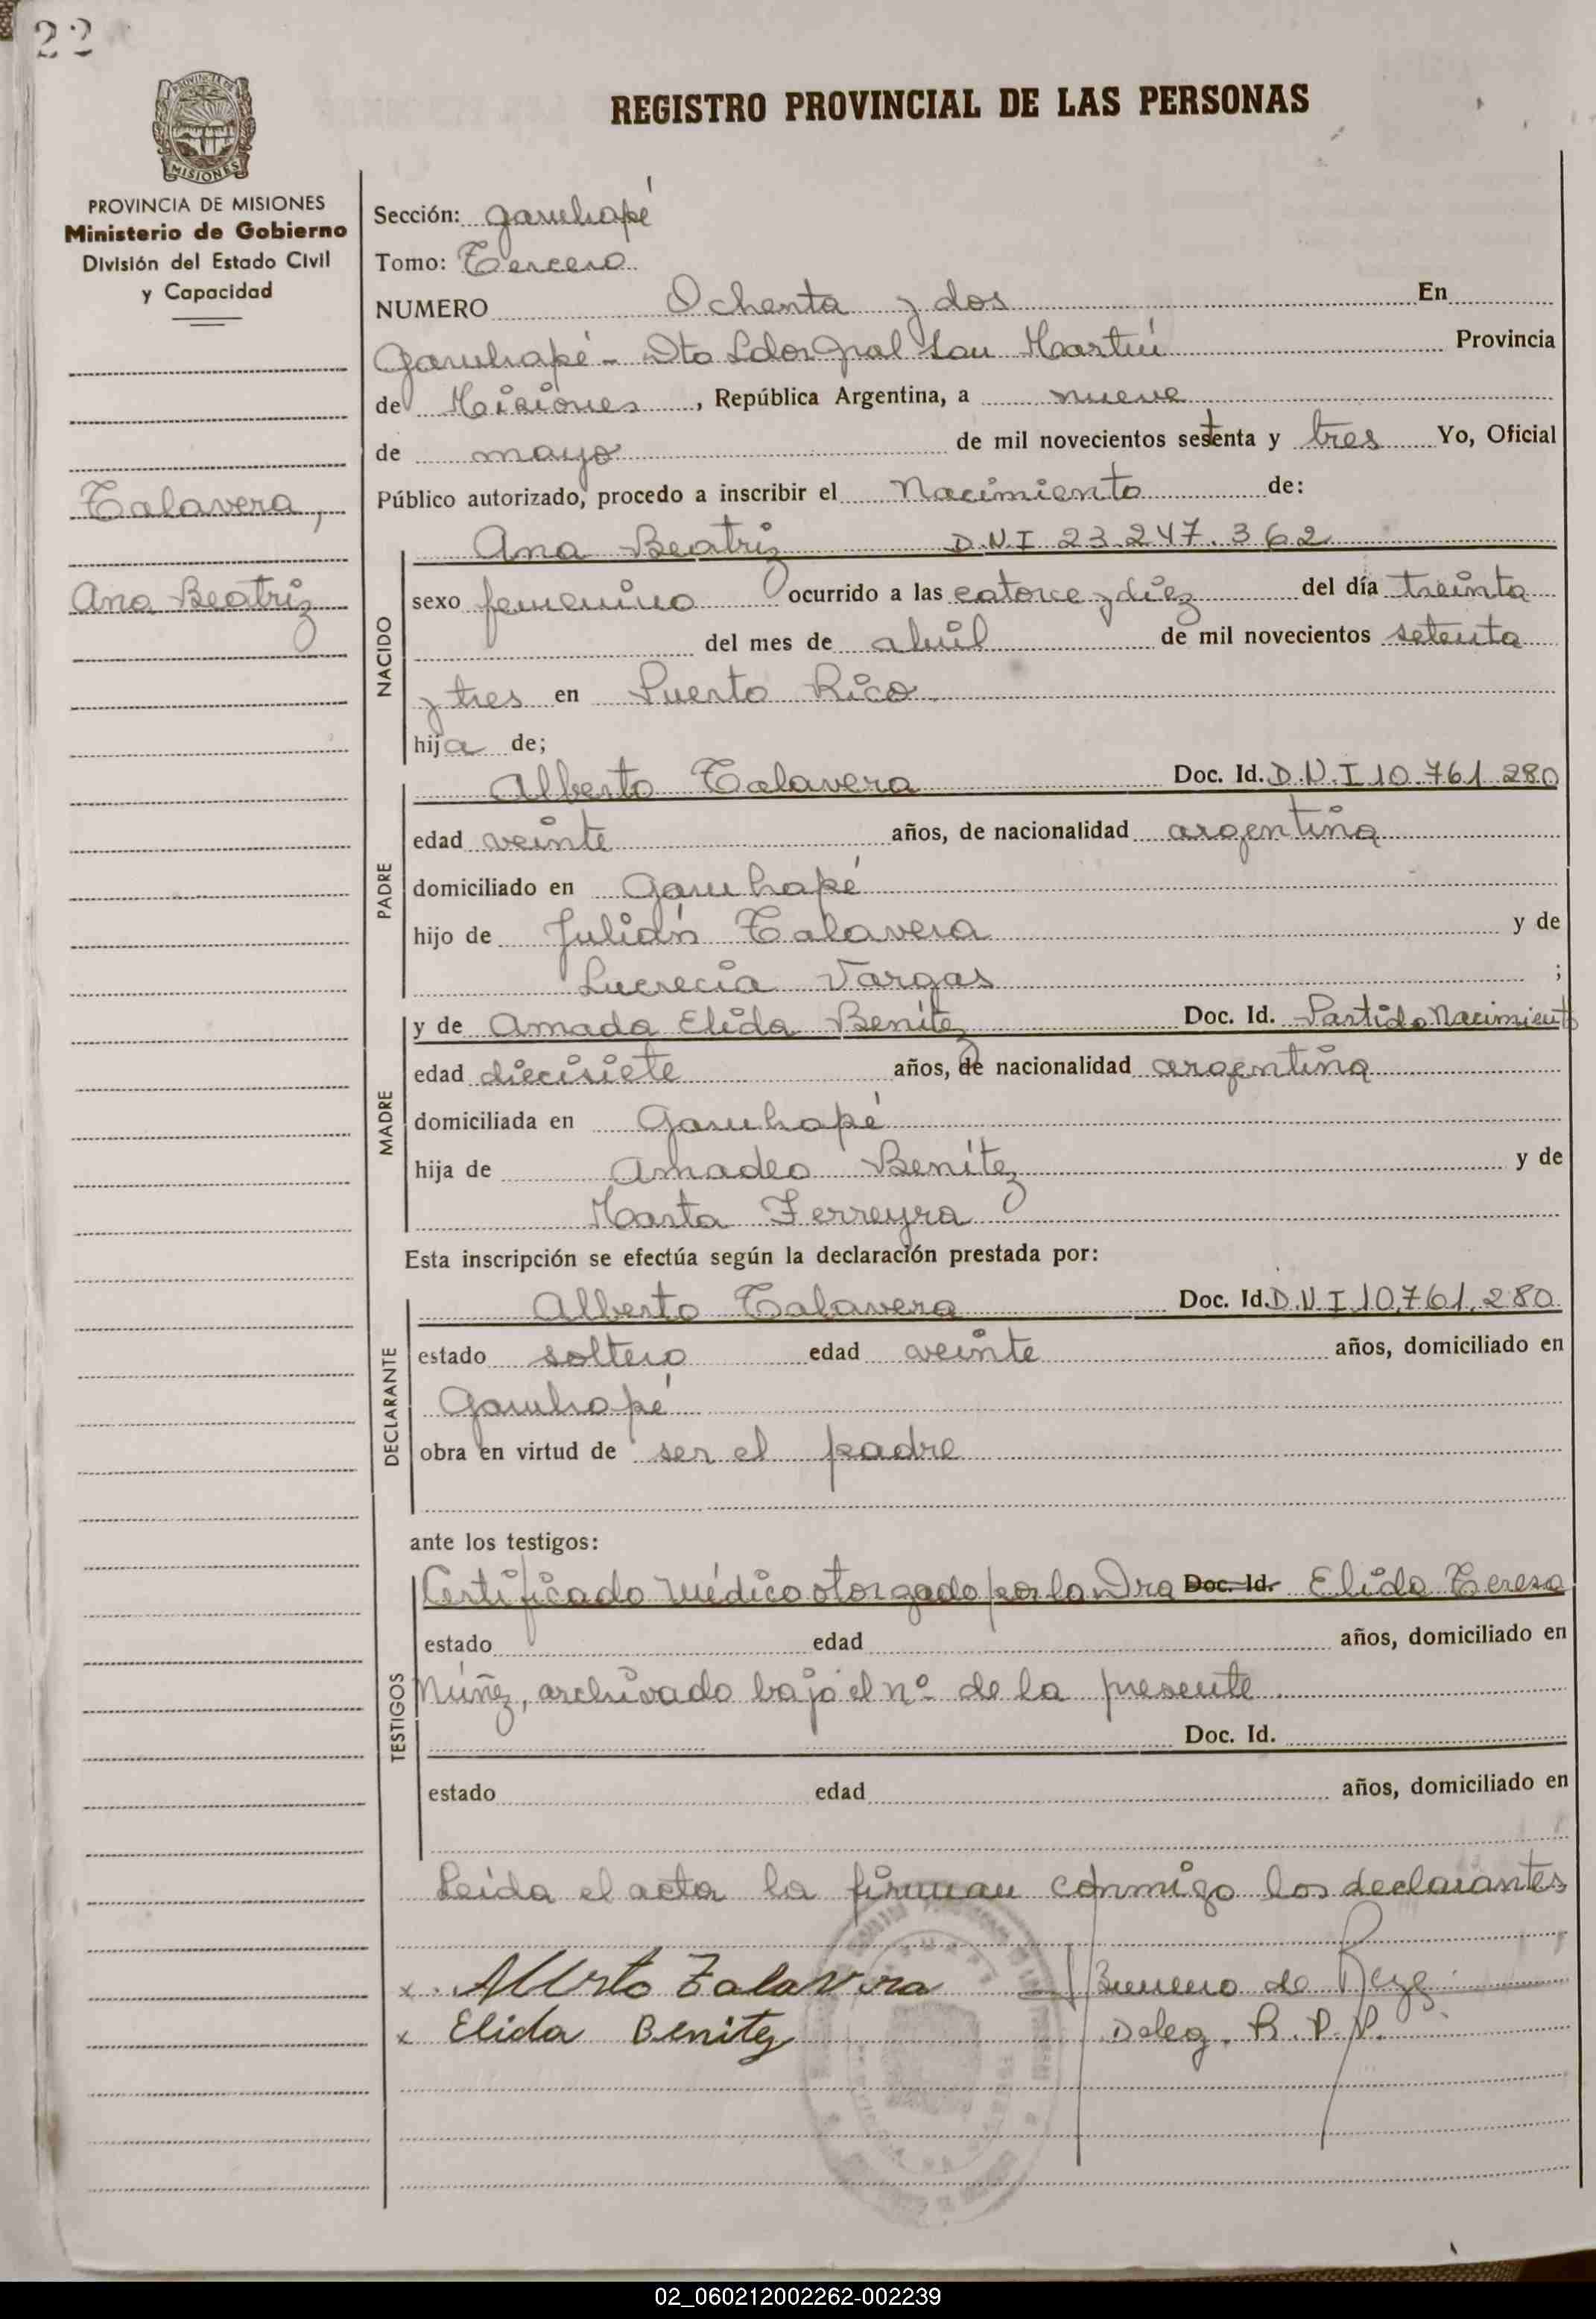 22
REGISTRO PROVINCIAL DE LAS PERSONAS
MISIONES
PROVINCIA DE MISIONES
Ministerio de Gobierno
División del Estado Civil
y Capacidad
Talavera,
Ana Beatriz
Sección: Garuhapé
Tomo: Tercero
NUMERO Ochenta y dos En
Garuhapé - Dto Ldor Gral San Martín Provincia
de Misiones, República Argentina, a nueve
de mayo de mil novecientos setenta y tres Yo, Oficial
Público autorizado, procedo a inscribir el Nacimiento de:
NACIDO
Ana Beatriz D.N.I 23.247.362
sexo femenino ocurrido a las catorce y diez del día treinta
del mes de abril de mil novecientos setenta
y tres en Puerto Rico
hija de;
PADRE
Alberto Talavera Doc. Id. D.N.I 10.761.280
edad veinte años, de nacionalidad argentina
domiciliado en Garuhapé
hijo de Julián Talavera y de
Lucrecia Vargas ;
MADRE
y de Amada Elida Benítez Doc. Id. Partida Nacimiento
edad diecisiete años, de nacionalidad argentina
domiciliada en Garuhapé
hija de Amadeo Benítez y de
Marta Ferreyra
Esta inscripción se efectúa según la declaración prestada por:
DECLARANTE
Alberto Talavera Doc. Id. D.N.I 10.761.280
estado soltero edad veinte años, domiciliado en
Garuhapé
obra en virtud de ser el padre
ante los testigos:
TESTIGOS
Certificado Médico otorgado por la Dra Doc. Id. Elida Teresa
estado edad años, domiciliado en
Núñez, archivado bajo el nº de la presente
Doc. Id.
estado edad años, domiciliado en
Leída el acta la firman conmigo los declarantes
x Alberto Talavera
x Elida Benitez
de
Deleg. R. P. P.
02_060212002262-002239